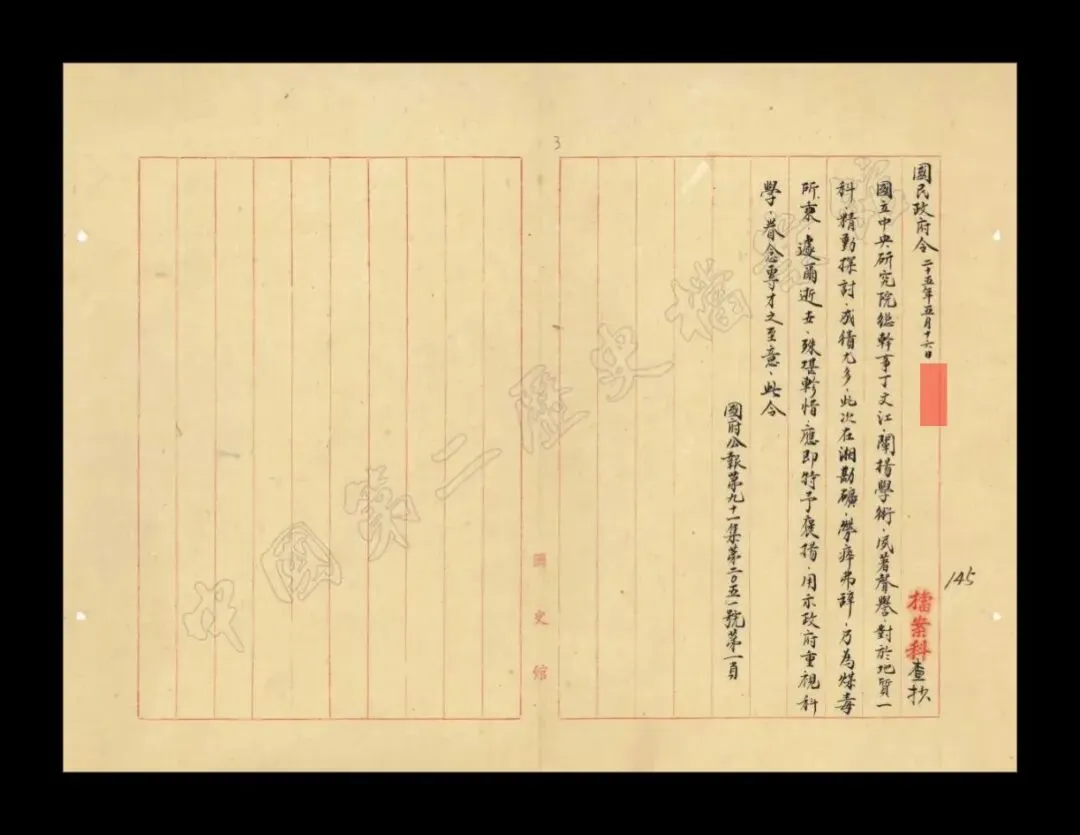 3
145
國民政府令 二十五年五月十六日
檔案科查抄
國立中央研究院總幹事丁文江、闡揚學術、夙著聲譽、對於地質一
科、精勤探討、成績尤多、此次在湘勘礦、勞瘁弗辭、乃為煤毒
所襲、遽爾逝世、殊堪軫惜、應即特予褒揚、用示政府重視科
學、眷念專才之至意、此令
國府公報第九十一集第二〇五一號第一頁
國史館
中國第二歷史檔案館